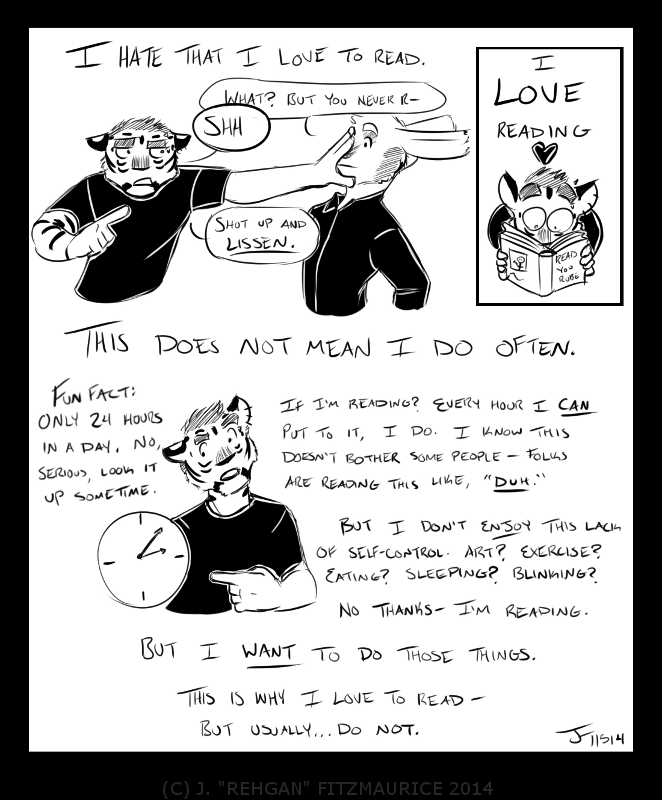 I HATE THAT I LOVE TO READ.
WHAT? BUT YOU NEVER R-
SHH
SHUT UP AND
LISSEN.
I
LOVE
READING
READ
YOU
RUBE
THIS DOES NOT MEAN I DO OFTEN.
FUN FACT:
ONLY 24 HOURS
IN A DAY. NO,
SERIOUS, LOOK IT
UP SOMETIME.
IF I'M READING? EVERY HOUR I CAN
PUT TO IT, I DO. I KNOW THIS
DOESN'T BOTHER SOME PEOPLE - FOLKS
ARE READING THIS LIKE, "DUH."
BUT I DON'T ENJOY THIS LACK
OF SELF-CONTROL. ART? EXERCISE?
EATING? SLEEPING? BLINKING?
NO THANKS- I'M READING.
BUT I WANT TO DO THOSE THINGS.
THIS IS WHY I LOVE TO READ -
BUT USUALLY... DO NOT.
J 11514
(C) J. "REHGAN" FITZMAURICE 2014